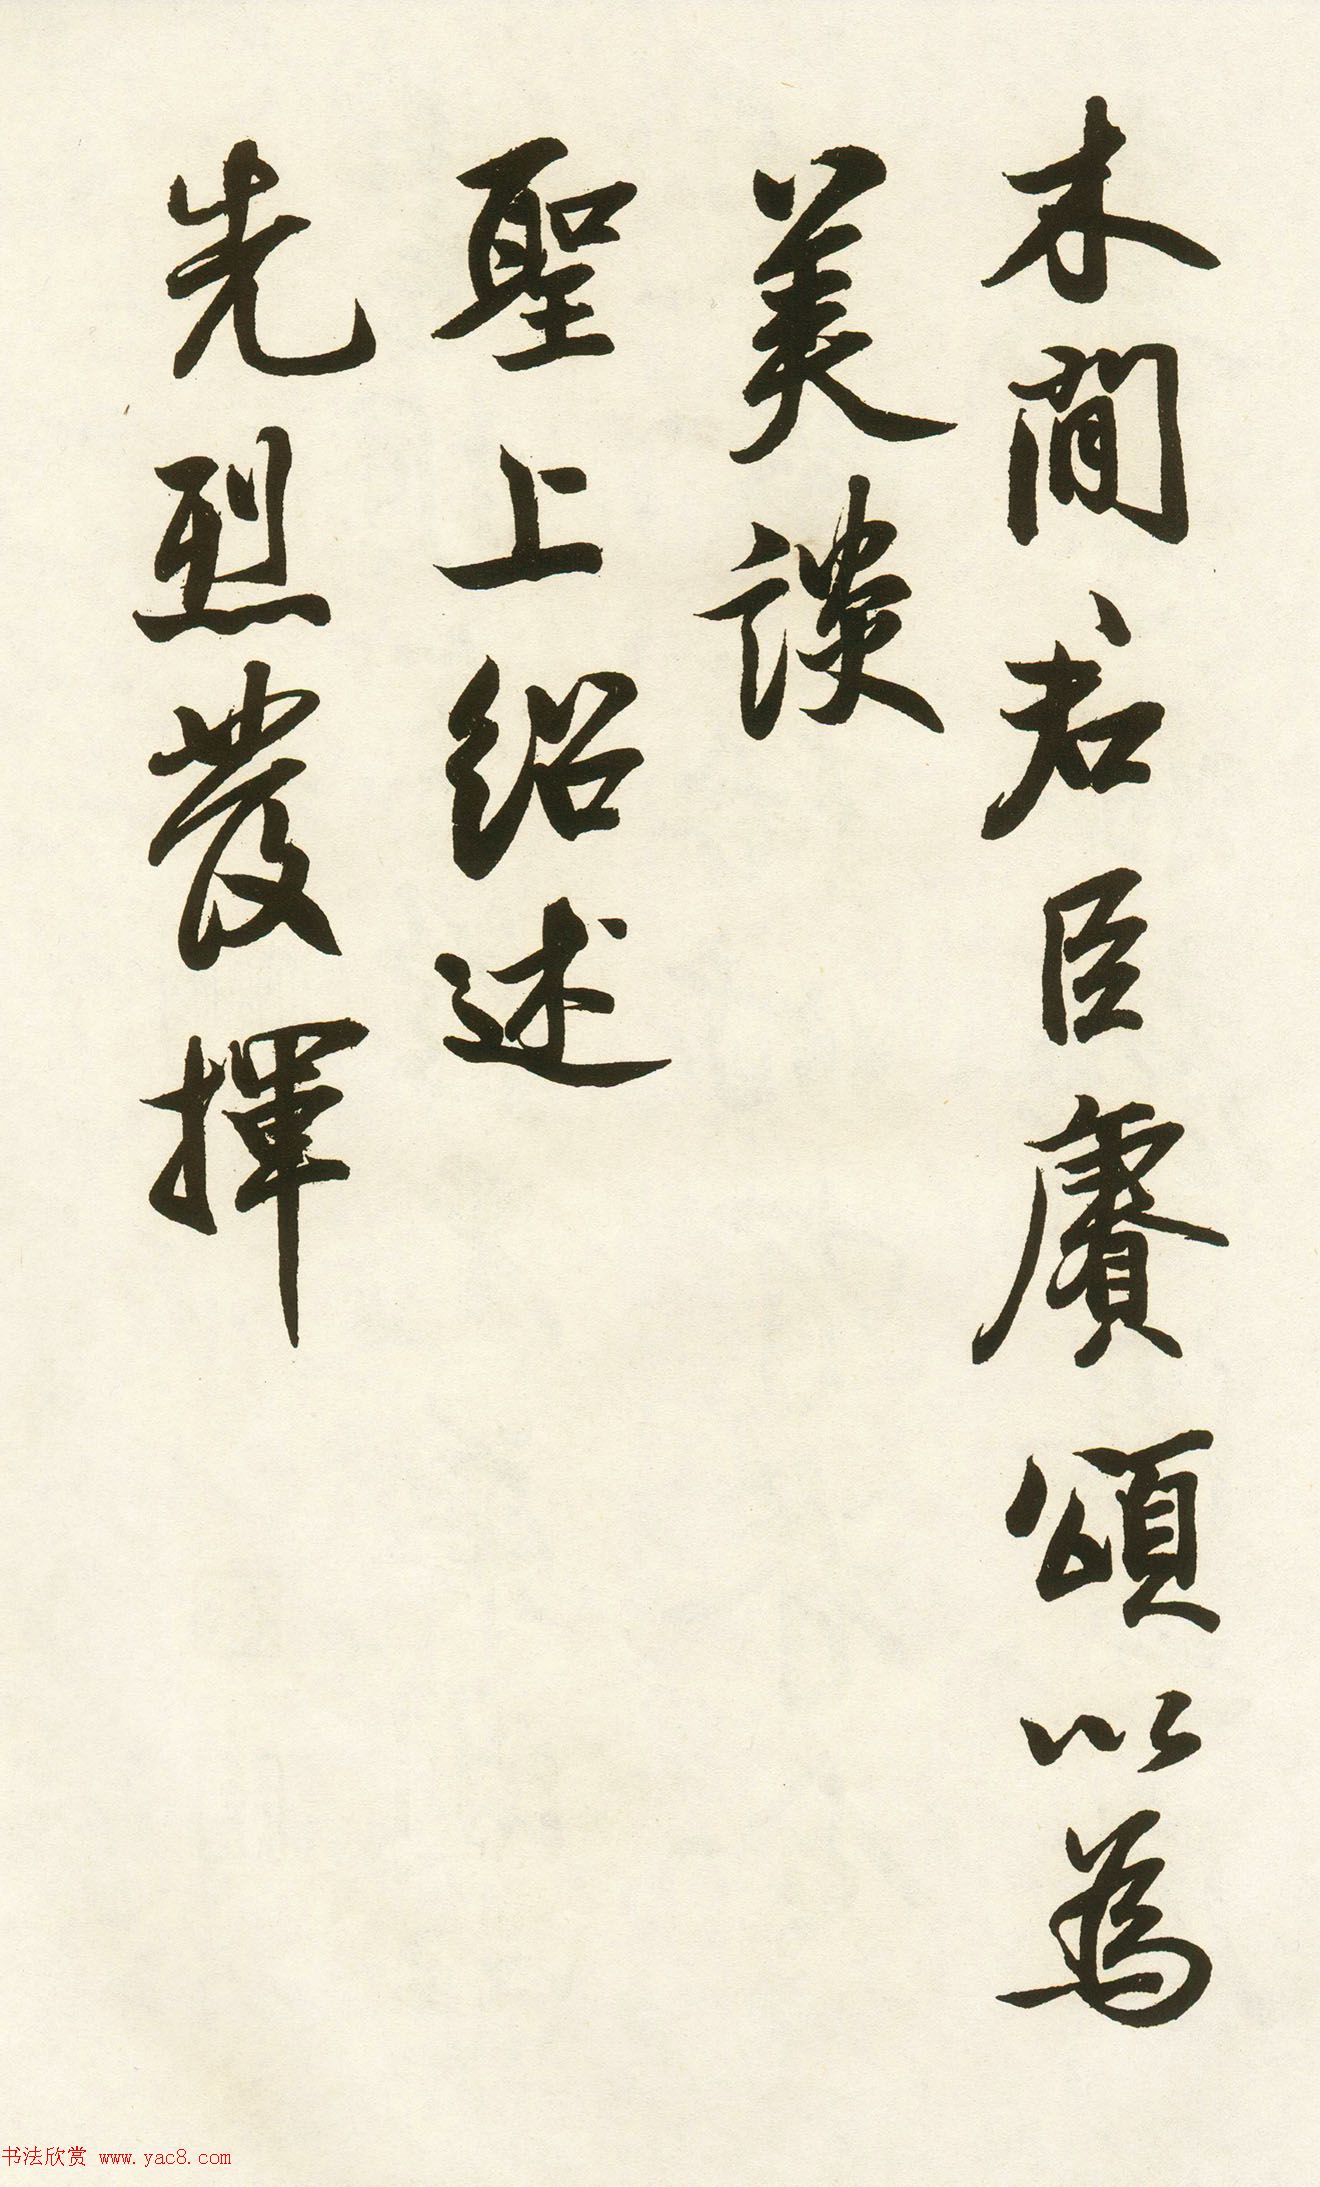 木間君臣賡頌以為
美談
聖上紹述
先烈發揮
书法欣赏 www.yac8.com